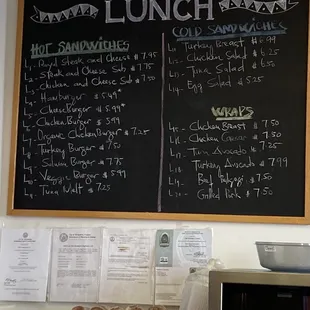 LUNCH
HOT SANDWICHES
L1- Royal Steak and Cheese $7.95
L2- Steak and Cheese Sub $7.75
L3- Chicken and Cheese Sub $7.50
L4- Hamburger $5.49*
L5- Cheeseburger $5.99*
L6- Chicken Burger $5.99
L7- Organic Chicken Burger $7.25
L8- Turkey Burger $7.50
Salmon Burger $7.75
Veggie Burger $5.99
Tuna Melt $7.25
COLD SANDWICHES
Turkey Breast $6.99
Chicken Salad $6.25
L13- Tuna Salad $6.50
L14- Egg Salad $5.25
WRAPS
L15- Chicken Breast $7.50
L16- Chicken Caesar $7.50
L17- Tuna Avocado $7.50
L18- Turkey Avocado $7.99
L19- Beef Bulgogi $7.50
L20- Grilled Pork $7.50